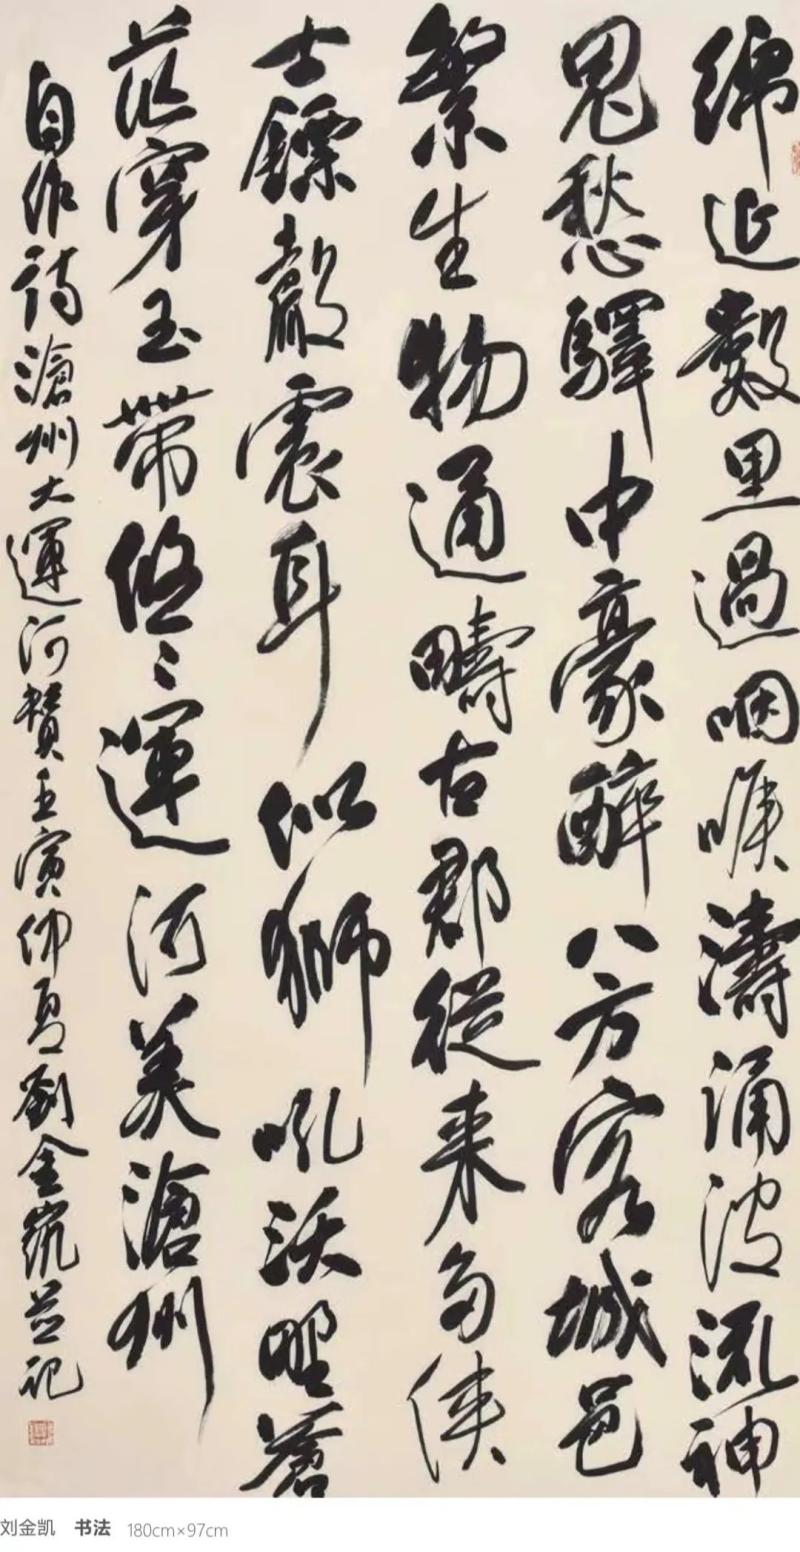 绵延數里過咽喉濤涌波流神
鬼愁驛中豪醉八方客城邑
繁生物通疇古郡從来多俠
士鏢聲震耳似獅吼沃野蒼
茫穿玉帶悠〻運河美滄州
自作詩滄州大運河贊壬寅仲夏劉金凯並记
刘金凯 书法 180cm×97cm